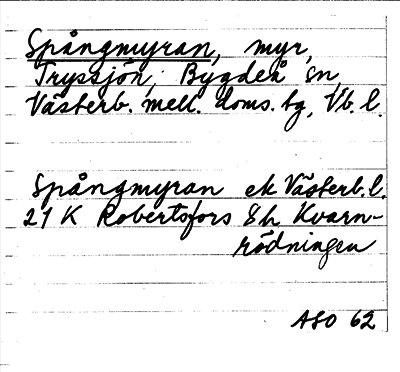 Spångmyran, myr,
Tryssjön, Bygdeå sn,
Västerb. mell. doms. tg, Vb. l.
Spångmyran ek Västerb. l.
21 K Robertsfors 8h Kvarn-
rödningen
ASO 62